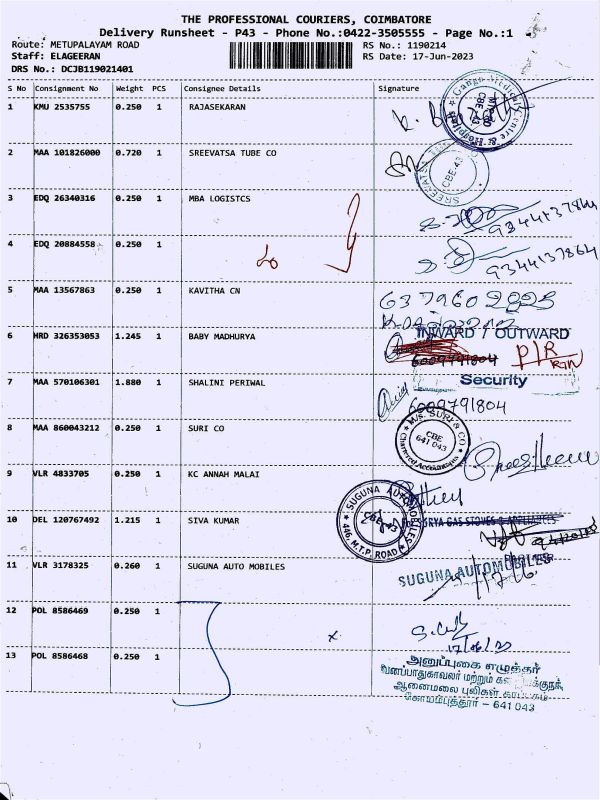 THE PROFESSIONAL COURIERS, COIMBATORE
Delivery Runsheet - P43 - Phone No.:0422-3505555 - Page No.:1
Route: METUPALAYAM ROAD
Staff: ELAGEERAN
DRS No.: DCJB119021401
RS No.: 1190214
RS Date: 17-Jun-2023
S No Consignment No Weight PCS Consignee Details Signature
1 KMU 2535755 0.250 1 RAJASEKARAN
Ganga Medical Centre & Hospitals
2 MAA 101826000 0.720 1 SREEVATSA TUBE CO
SREEVATSA CBE-43
3 EDQ 26340316 0.250 1 MBA LOGISTCS
9344137864
4 EDQ 20884558 0.250 1
9344137864
5 MAA 13567863 0.250 1 KAVITHA CN
6379602825
6 MRD 326353053 1.245 1 BABY MADHURYA
INWARD / OUTWARD
6009791804
P/R
Security
7 MAA 570106301 1.880 1 SHALINI PERIWAL
6009791804
8 MAA 860043212 0.250 1 SURI CO
M/s. SURI & CO
CBE
641 043
Chartered Accountants
9 VLR 4833705 0.250 1 KC ANNAH MALAI
10 DEL 120767492 1.215 1 SIVA KUMAR
SUGUNA AUTOMOBILES
CBE-43
446, M.T.P. ROAD
SURYA GAS STOVES & APPLIANCES
11 VLR 3178325 0.260 1 SUGUNA AUTO MOBILES
SUGUNA AUTOMOBILES
12 POL 8586469 0.250 1
17/06/23
13 POL 8586468 0.250 1
அனுப்புகை எழுத்தர்
வனப்பாதுகாவலர் மற்றும்
ஆனைமலை புலிகள் காப்பகம்
கோயம்புத்தூர் - 641 043